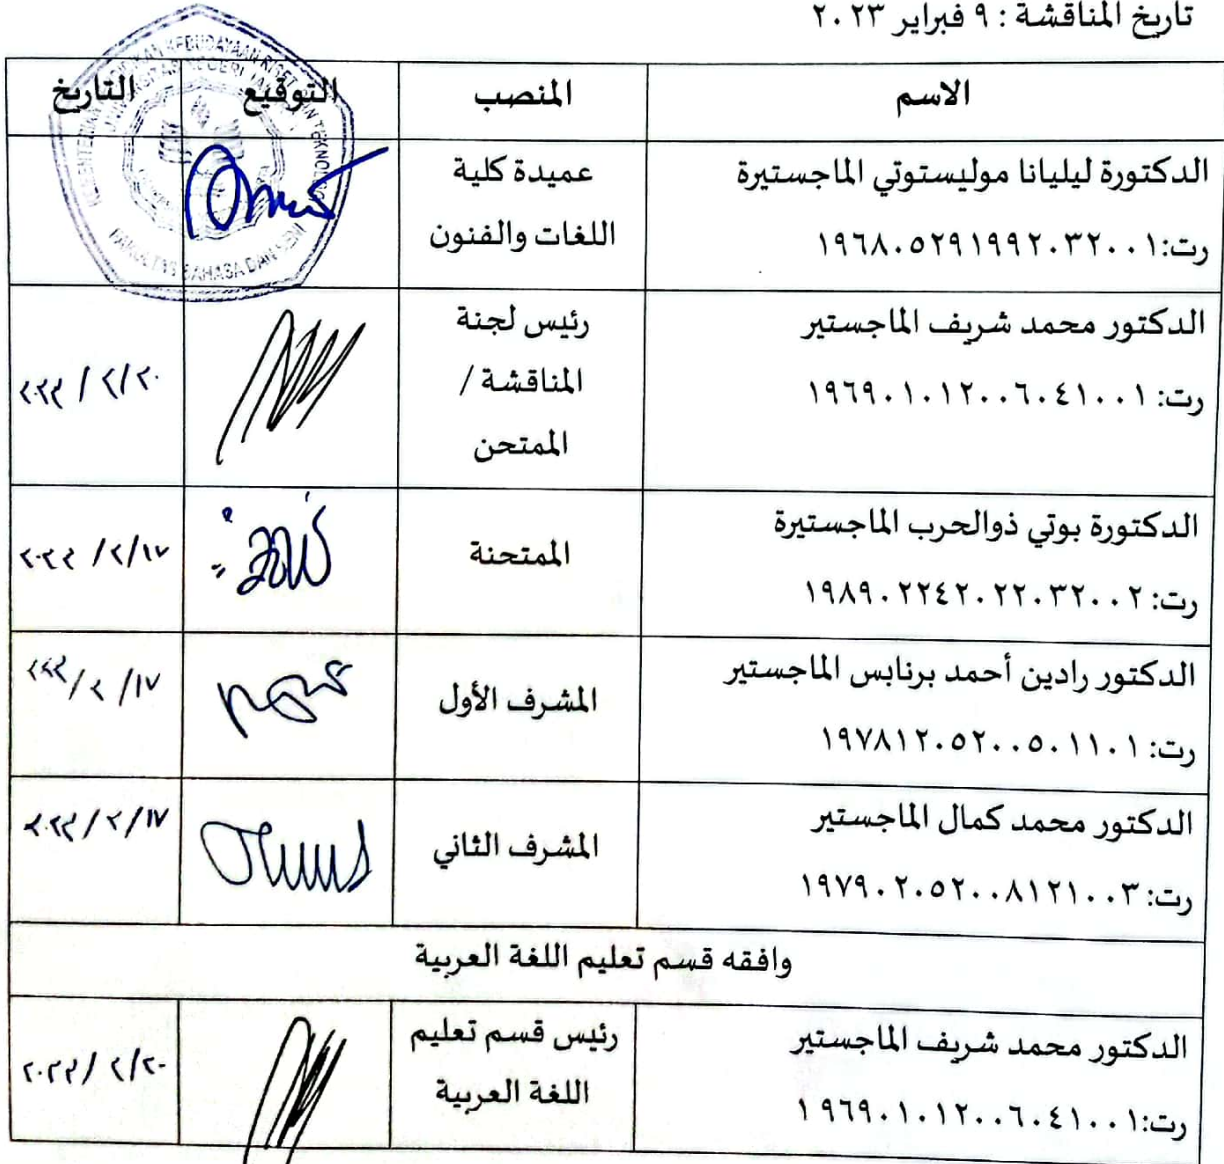 تاريخ المناقشة : ٩ فبراير ٢٠٢٣
الاسم المنصب التوقيع التاريخ
الدكتورة ليليانا موليستوتي الماجستيرة
رت:١٩٦٨٠٥٢٩١٩٩٢٠٣٢٠٠١
عميدة كلية
اللغات والفنون
FAKULTAS BAHASA DAN SENI
الدكتور محمد شريف الماجستير
رت: ١٩٦٩٠١٠١٢٠٠٦٠٤١٠٠١
رئيس لجنة
المناقشة /
الممتحن
الدكتورة بوتي ذوالحرب الماجستيرة
رت: ١٩٨٩٠٢٢٤٢٠٢٢٠٣٢٠٠٢
الممتحنة
الدكتور رادين أحمد برنابس الماجستير
رت: ١٩٧٨١٢٠٥٢٠٠٥٠١١٠١
المشرف الأول
الدكتور محمد كمال الماجستير
رت: ١٩٧٩٠٢٠٥٢٠٠٨١٢١٠٠٣
المشرف الثاني
وافقه قسم تعليم اللغة العربية
الدكتور محمد شريف الماجستير
رت:١٩٦٩٠١٠١٢٠٠٦٠٤١٠٠١
رئيس قسم تعليم
اللغة العربية